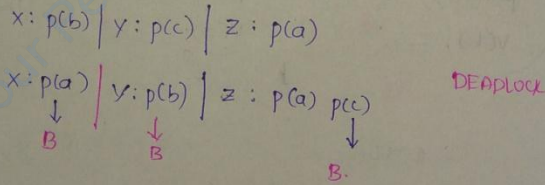 x : p(b) | y : p(c) | z : p(a)
x : p(a) | y : p(b) | z : p(a) p(c)
DEADLOCK
↓ ↓ ↓
B B B.